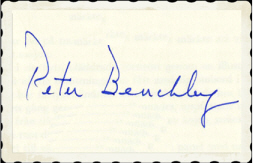 Peter Benchley